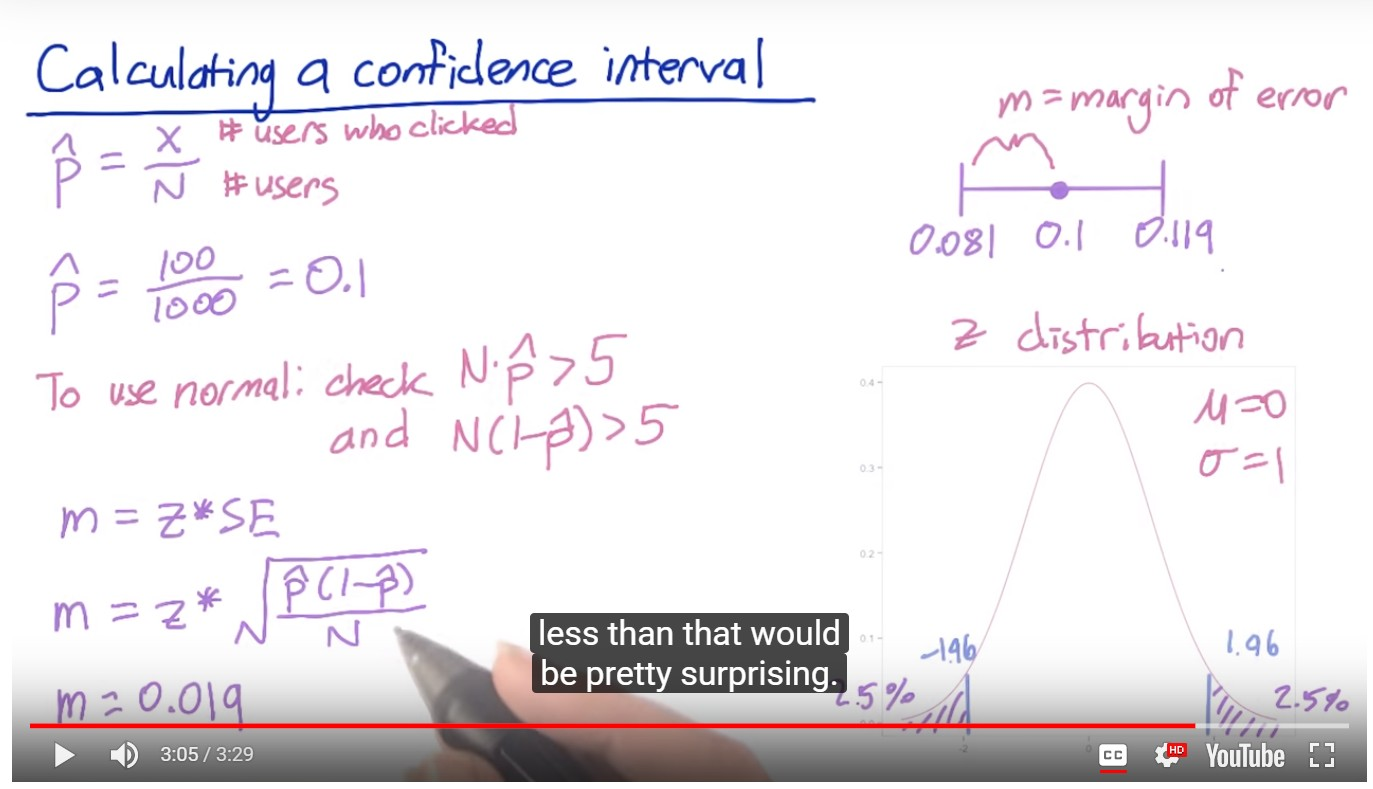 Calculating a confidence interval
p̂ = X / N
# users who clicked
# users
p̂ = 100 / 1000 = 0.1
To use normal: check N·p̂ > 5
and N(1-p̂) > 5
m = Z * SE
m = Z * √(p̂(1-p̂) / N)
m = 0.019
m = margin of error
0.081 0.1 0.119
Z distribution
μ=0
σ=1
0.4
0.3
0.2
0.1
0.0
-1.96
1.96
2.5%
2.5%
-2 0 2
less than that would
be pretty surprising.
3:05 / 3:29
CC
HD
YouTube